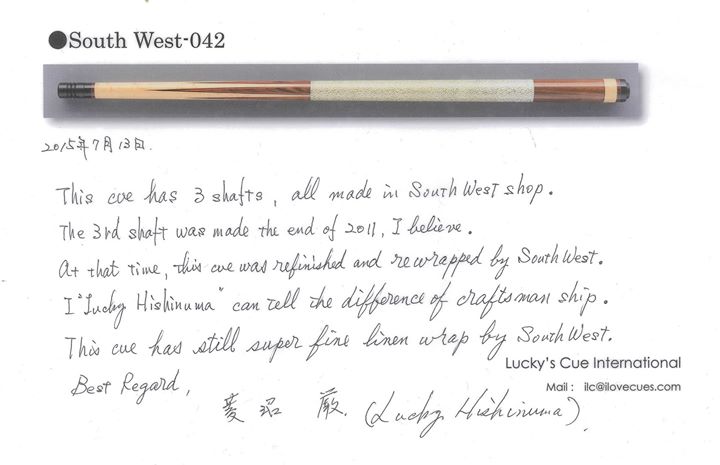 ●South West-042
2015年7月13日.
This cue has 3 shafts, all made in South West shop.
The 3rd shaft was made the end of 2011, I believe.
At that time, this cue was refinished and rewrapped by South West.
I "Lucky Hishinuma" can tell the difference of craftsman ship.
This cue has still super fine linen wrap by South West.
Lucky's Cue International
Mail : ilc@ilovecues.com
Best Regard,
菱沼 厳. (Lucky Hishinuma)